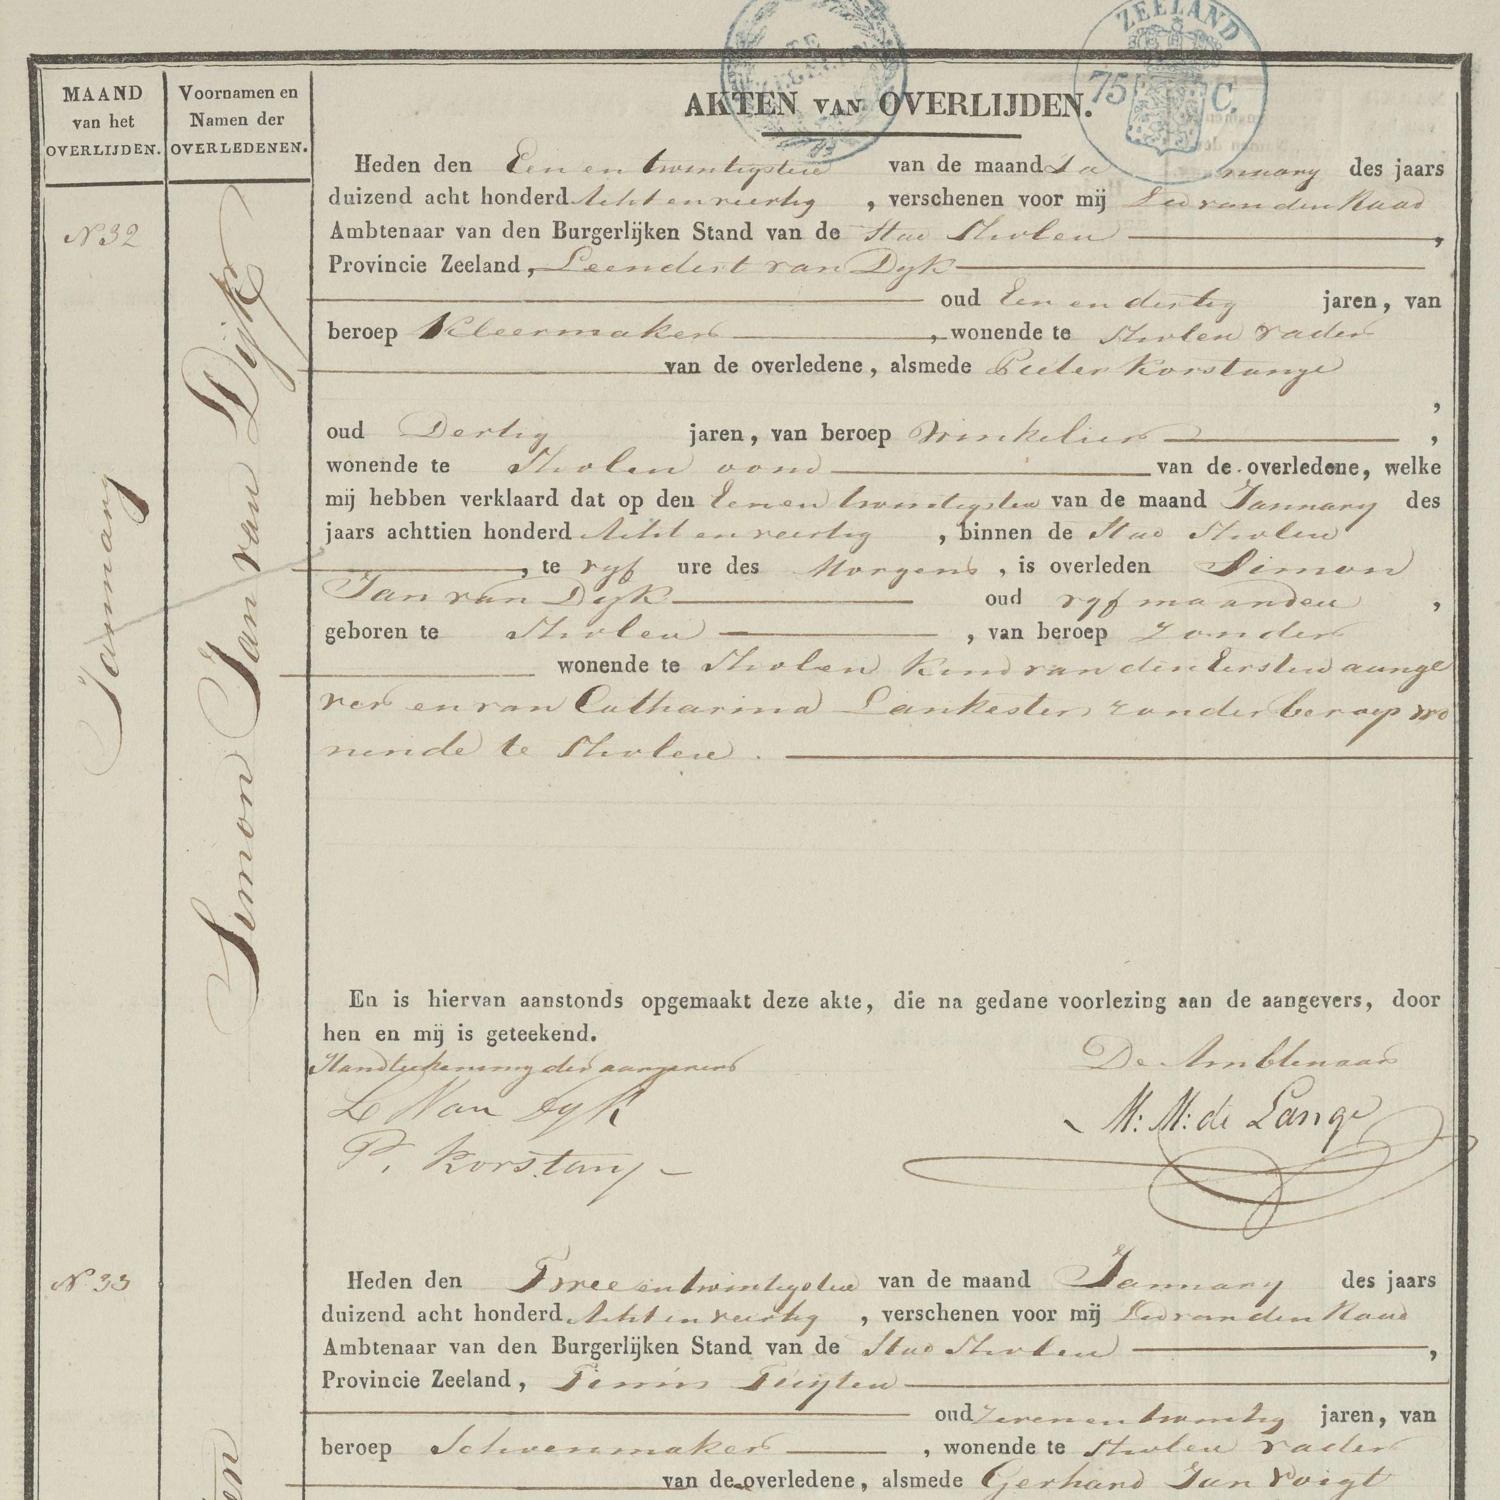 ZEELAND
75 C.
MAAND
van het
OVERLIJDEN.
Voornamen en
Namen der
OVERLEDENEN.
AKTEN VAN OVERLIJDEN.
N 32
January
Simon Jan van Dijk
Heden den Een en twintigsten van de maand Ja nuary des jaars
duizend acht honderd Acht en veertig , verschenen voor mij Lid van den Raad
Ambtenaar van den Burgerlijken Stand van de Stad Tholen ,
Provincie Zeeland, Leendert van Dyk
oud Een en dertig jaren, van
beroep Kleermaker , wonende te Tholen Vader
van de overledene, alsmede Pieter Korstange
,
oud Dertig jaren, van beroep Winkelier ,
wonende te Tholen oom van de overledene, welke
mij hebben verklaard dat op den Eenen twintigsten van de maand January des
jaars achttien honderd Acht en veertig , binnen de Stad Tholen
, te vyf ure des Morgens , is overleden Simon
Jan van Dyk oud vyf maanden ,
geboren te Tholen , van beroep Zonder
wonende te Tholen Kind van den Eersten aange
ver en van Catharina Lankester zonder beroep wo
nende te Tholen .
En is hiervan aanstonds opgemaakt deze akte, die na gedane voorlezing aan de aangevers, door
hen en mij is geteekend.
Handteekening der aangevers
De Ambtenaar
L Van Dyk
M: M: de Lange
P. Korstang
N 33
Heden den Twee en twintigsten van de maand January des jaars
duizend acht honderd Acht en veertig , verschenen voor mij Lid van den Raad
Ambtenaar van den Burgerlijken Stand van de Stad Tholen ,
Provincie Zeeland,
oud Zeven en twintig jaren, van
beroep Schoenmaker , wonende te Tholen Vader
van de overledene, alsmede Gerhard Jan Voigt
en